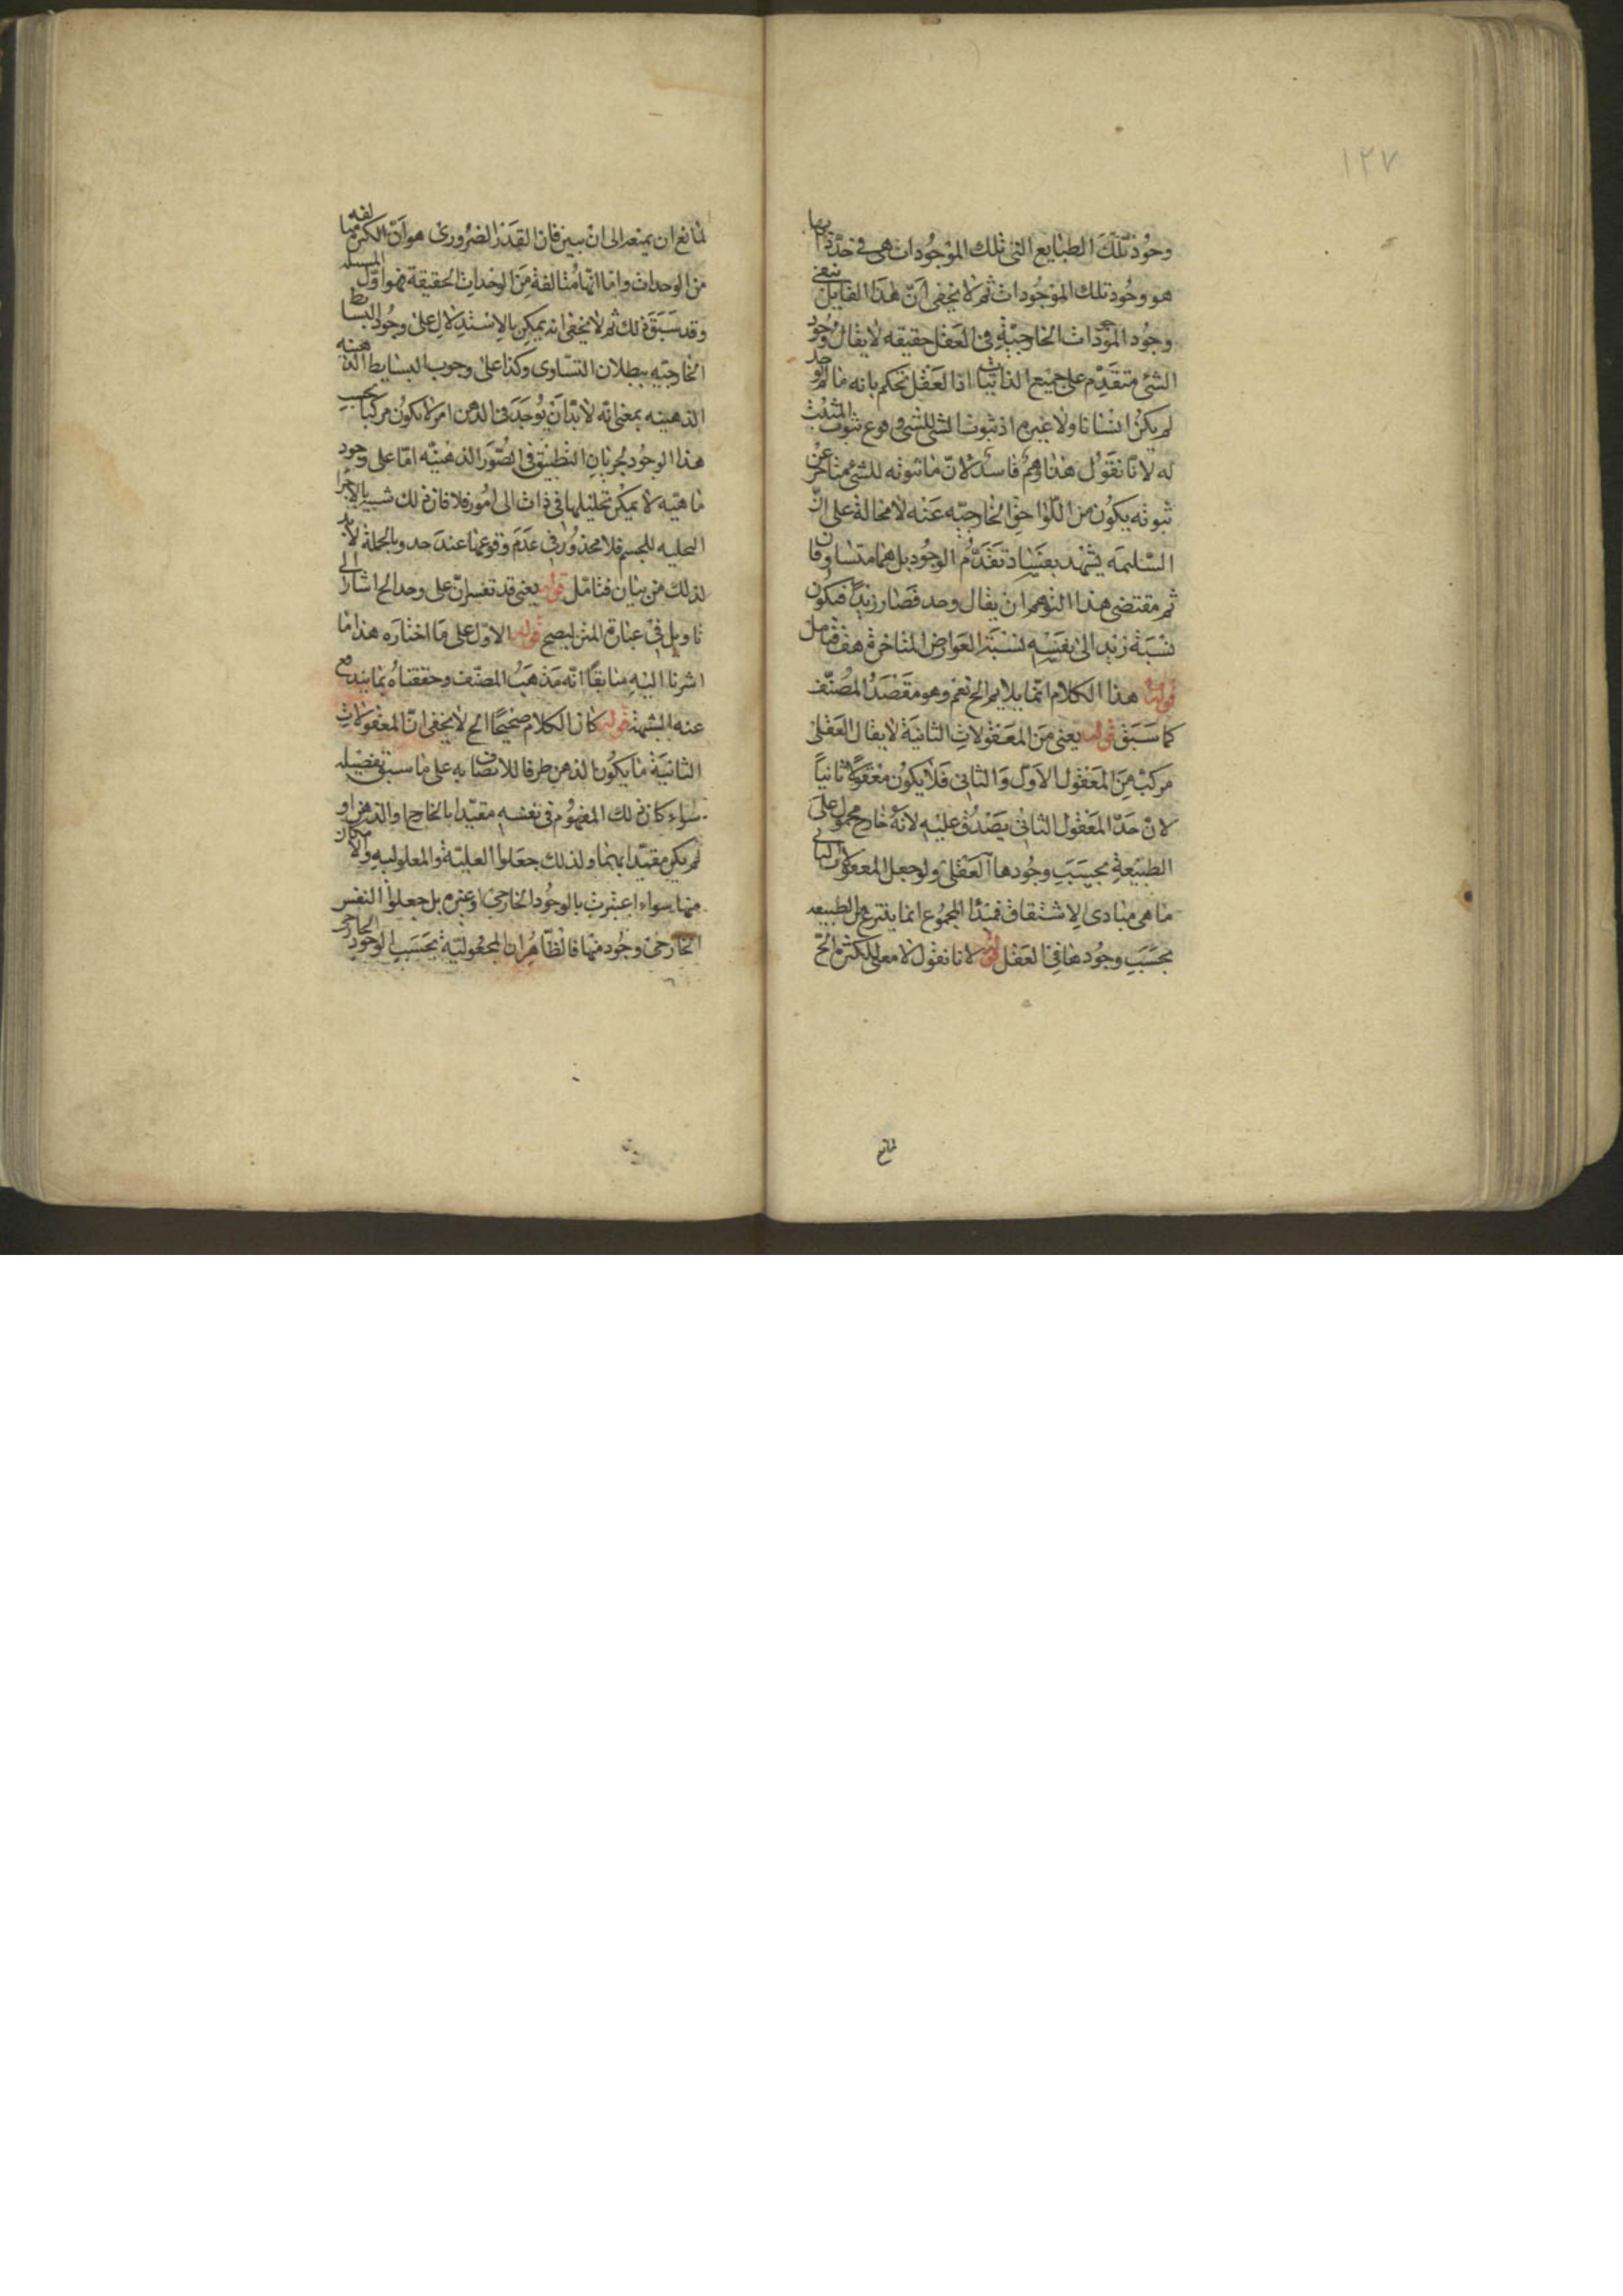 ١٢٧
وجود تلك الطبايع التى تلك الموجودات هى فى حد ذاتها
هو وجود تلك الموجودات ثم لا يخفى ان هذا القايل ينفى
وجود الموجودات الخارجية فى العقل حقيقه لا يقال وجود
الشئ متقدم على جميع الذاتيات اذا العقل يحكم بانه ما لم يوجد
لم يكن انسانا ولا غيره اذ ثبوت الشئ للشئ فرع ثبوت المثبت
له لانا نقول هذا وهم فاسد لان ما ثبوته للشئ متأخر عن
ثبوته يكون من اللواحق الخارجيه عنه لا محالة على ان
السليمه يشهد بفساد تقدم الوجود بل هما متساوقان
ثم مقتضى هذا التوهم ان يقال وجد فصار زيدا فيكون
نسبة زيد الى نفسه نسبة العوارض المتاخرة هف فتامل
قوله هذا الكلام انما يلايم الخ نعم وهو مقصد المصنف
كما سبق قوله يعنى من المعقولات الثانية لا يقال العقلى
مركب من المعقول الاول والثانى فلا يكون معقولا ثانيا
لان حد المعقول الثانى يصدق عليه لانه خارج محمول على
الطبيعة بحسب وجودها العقلى ولو جعل المعقولات الثانى
ما هى مبادى الاشتقاق فمبدأ المجموع انما ينتزع من الطبيعه
بحسب وجودها فى العقل قوله لانا نقول لا معنى للكثرة الخ
لمانع
لمانع ان يمنعه الى ان يبين فان القدر الضرورى هو ان الكثرة متالفه
من الوحدات واما انها متالفة من الوحدات الحقيقة فهو اول المسئله
وقد سبق ذلك ثم لا يخفى انه يمكن بالاستدلال على وجود البسائط
الخارجيه ببطلان التساوى وكذا على وجوب البسايط الذهنيه
الذهنيه بمعنى انه لابد ان يوجد فى الذهن امر لا يكون مركبا بحسب
هذا الوجود لجريان التطبيق فى الصور الذهنيه اما على وجود
ماهيه لا يمكن تحليلها فى ذات الى امور فلا فان ذلك شبيه بالاجزا
التحليه للجسم فلا محذور فى عدم وقوعها عند حد وبالجملة لابد
لذلك من بيان فتامل قوله يعنى قد تفسران على وجد الخ اشار الى
تاويل فى عبارة المتن ليصح قوله الاول على ما اختاره هذا ما
اشرنا اليه سابقا انه مذهب المصنف وحققناه بما يندفع
عنه الشبهة قوله كان الكلام صحيحا الخ لا يخفى ان المعقولات
الثانية ما يكون الذهن طرفا للاتصاف به على ما سبق تفصيله
سواء كان ذلك المفهوم فى نفسه مقيدا بالخارج او الذهن او
لم يكن مقيدا بهما ولذلك جعلوا العلية والمعلولية والامكان
منها سواء اعتبرت بالوجود الخارجى او غيره بل جعلوا النفس
الخارجى وجود منها فالظاهر ان المجعولية بحسب الوجود الخارجى